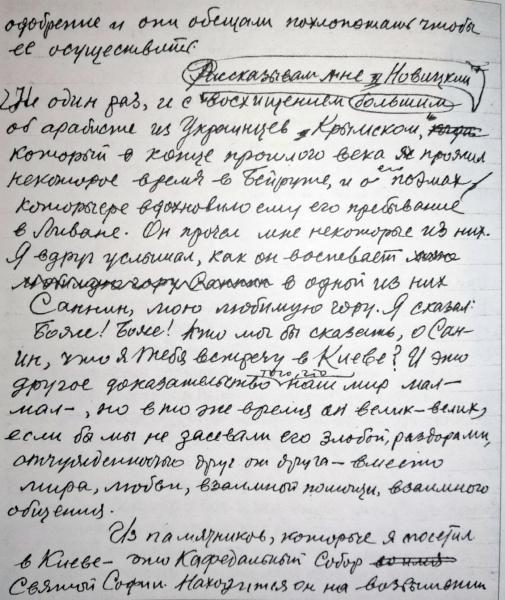 одобрение и они обещали похлопотать чтобы
её осуществить.
Рассказывал мне и Новицкий
2) Не один раз, и с восхищением большим
об арабисте из Украинцев, Крымском,
который в конце прошлого века прожил
некоторое время в Бейруте, и о его поэмах,
которые вдохновило ему его пребывание
в Ливане. Он прочёл мне некоторые из них.
Я вдруг услышал, как он воспевает
любимую гору Саннин в одной из них
Саннин, мою любимую гору. Я сказал:
Боже! Боже! Кто мог бы сказать, о Сан-
ин, что я тебя встречу в Киеве? И это
другое доказательство того, что наш мир мал-
мал-, но в то же время он велик-велик,
если бы мы не засевали его злобой, раздорами,
отчуждённостью друг от друга - вместо
мира, любви, взаимной помощи, взаимного
общения.
Из памятников, которые я посетил
в Киеве - это Кафедальный Собор
Святой Софии. Находится он на возвышении